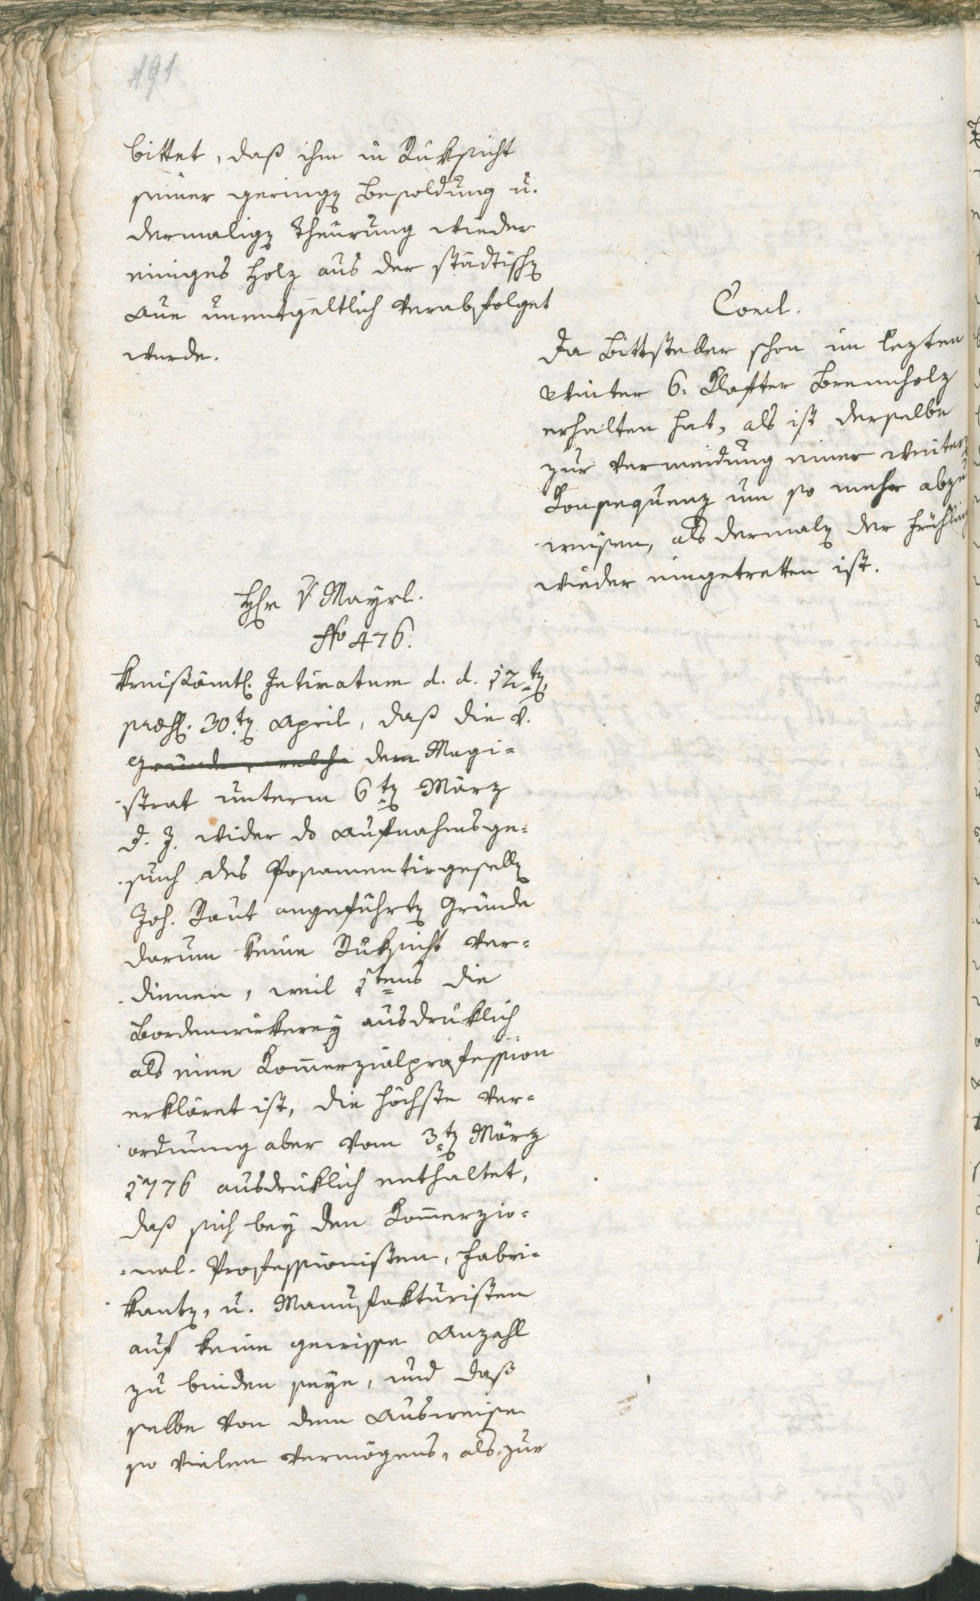 191
bittet, daß ihm in Rüksicht
seiner geringen Besoldung u.
dermaligen Theürung wieder
einiges Holz aus der städtischen
Aue unentgeltlich verabfolget
werde.
Concl.
Da Bittsteller schon im lezten
Winter 6. Klafter Brennholz
erhalten hat, als ist derselbe
zur Vermeidung einer weitern
Konsequenz um so mehr abzu
weisen, als dermalen der Frühling
wieder eingetretten ist.
Hr. v Mayrl.
No 476.
Kreisämtl. Intimatum d. d. 12ten
praes. 30ten April, daß die v.
Gründe, welche dem Magi=
strat unterm 6ten März
d. J. wider das Aufnahmsge=
such des Posamentirgesellen
Joh. Raut angeführten Gründe
darum keine Rüksicht ver=
dienen, weil 1tens die
Bordenwirkerey ausdrüklich
als eine Kom̄erzialprofession
erkläret ist, die höchste Ver=
ordnung aber vom 3ten März
1776 ausdrüklich enthaltet,
daß sich bey den Kom̄erzio=
nal-Professionisten, Fabri=
kanten, u. Manufakturisten
auf keine gewisse Anzahl
zu binden seye, und daß
selbe von dem Ausweise
so vielen Vermögens, als zur